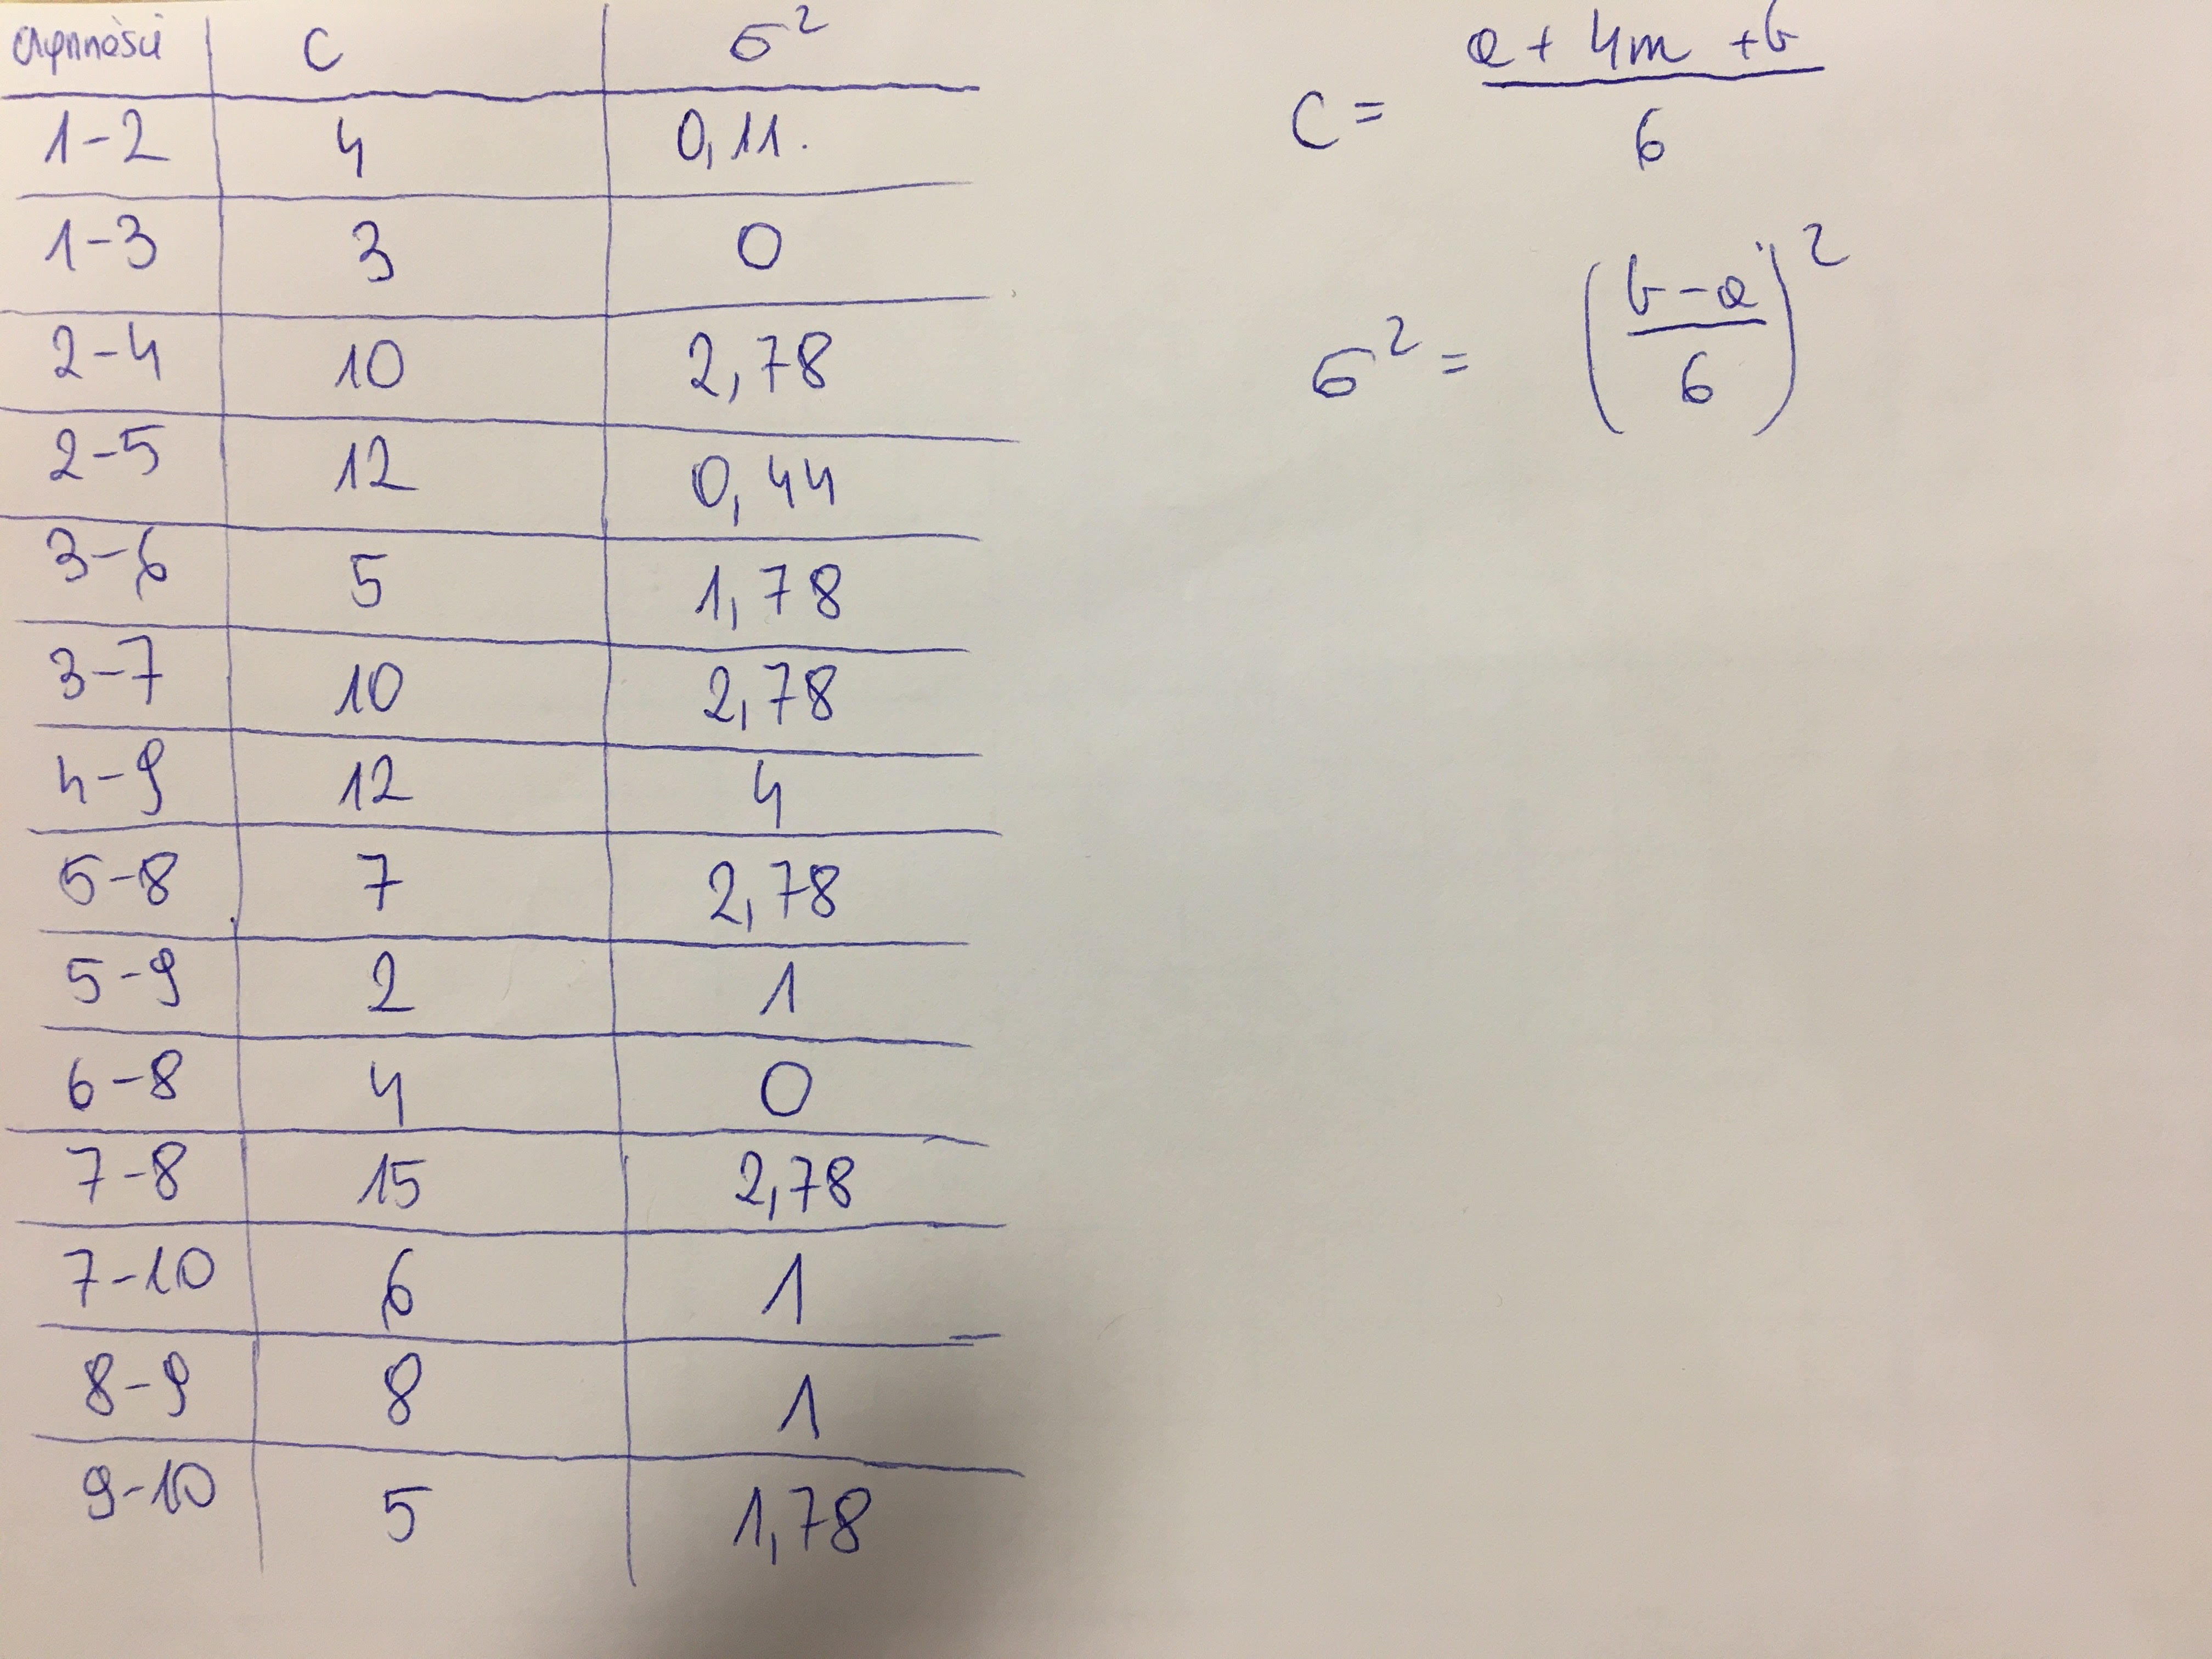 czynności C σ²
1-2 4 0,11.
1-3 3 0
2-4 10 2,78
2-5 12 0,44
3-6 5 1,78
3-7 10 2,78
4-9 12 4
5-8 7 2,78
5-9 2 1
6-8 4 0
7-8 15 2,78
7-10 6 1
8-9 8 1
9-10 5 1,78
C = (a + 4m + b) / 6
σ² = ((b - a) / 6)²